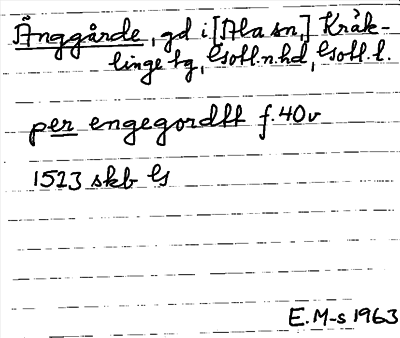 Änggårde, gd i [Ala sn,] Kräk-
linge tg, Gotl.n.hd, Gotl.l.
per engegordht f.40v
1523 skb G
E.M-s 1963